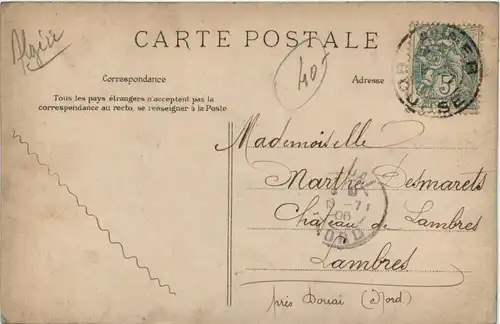 Algérie
CARTE POSTALE
40f
Correspondance
Adresse
Tous les pays étrangers n'acceptent pas la
correspondance au recto, se renseigner à la Poste.
ALGER
BOURSE
5
Mademoiselle
Marthe Desmarets
Château de Lambres
Lambres
près Douai (Nord)
06
NORD